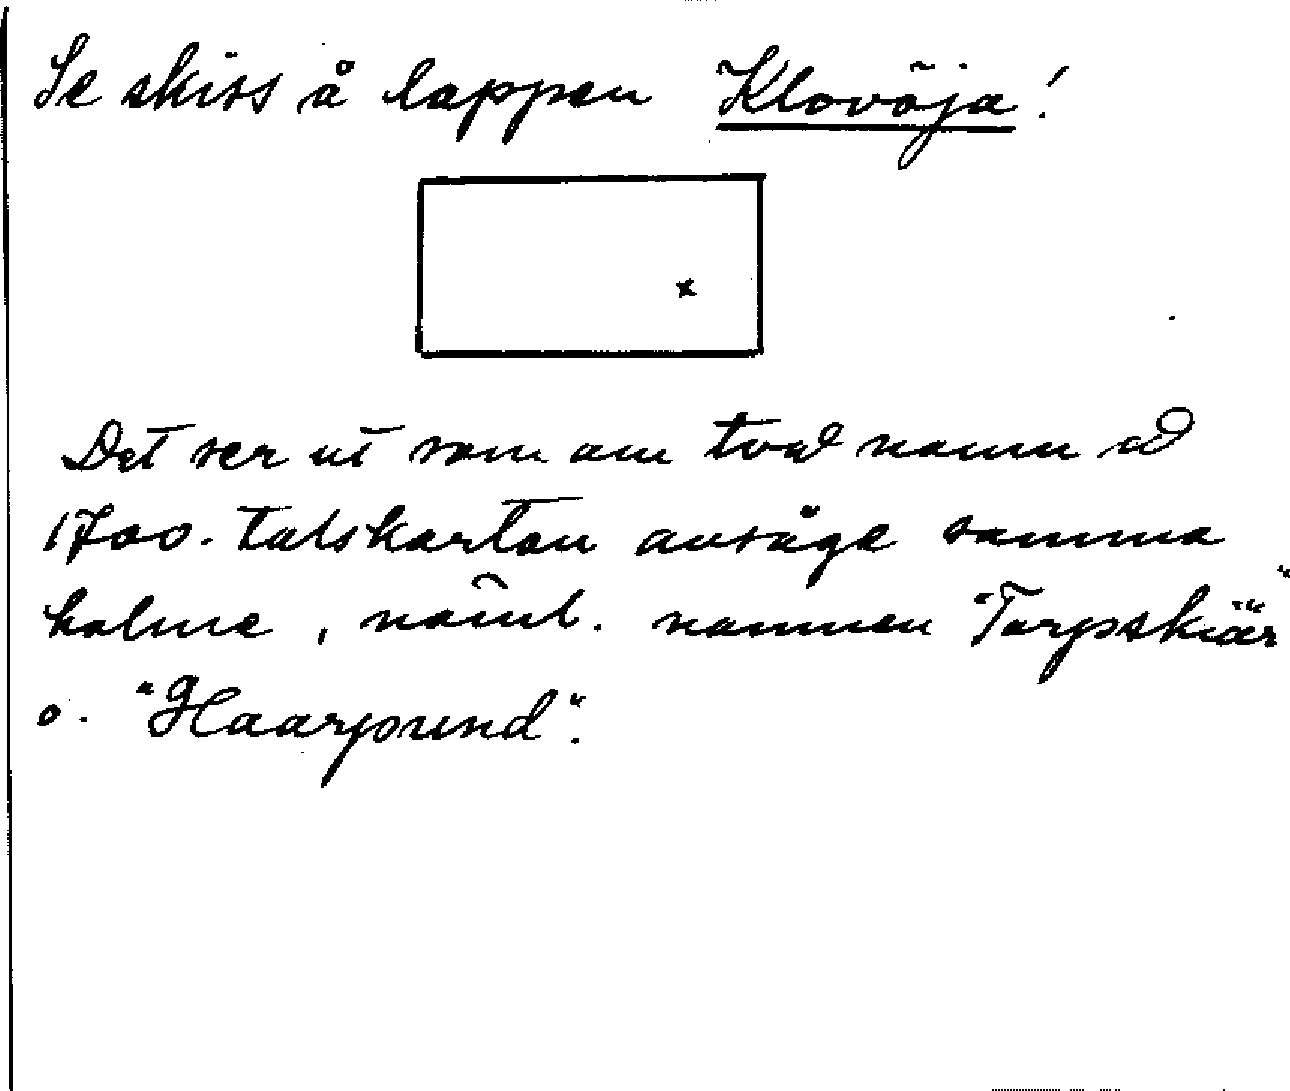 Se skiss å lappen Klovöja!
x
Det ser ut som om två namn å
1700-talskartan avsåge samma
holme, näml. namnen "Torpskiär"
o. "Haarpund".